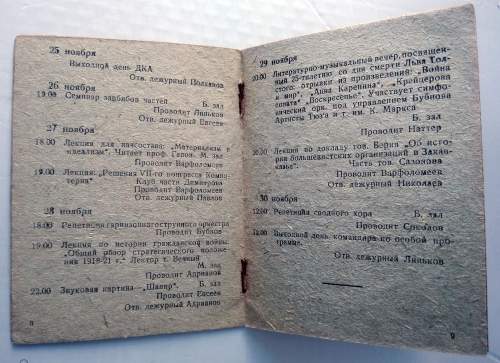 25 ноября
Выходной день ДКА
Отв. дежурный Полканов
26 ноября
19.00 Семинар завбибов частей Б. зал
Проводит Линьков
Отв. дежурный Евсеев
27 ноября
18.00 Лекция для начсостава: „Материализм и
идеализм". Читает проф. Гапон. М. зал
Проводит Варфоломеев
19.00 Лекция: „Решения VII-го конгресса Коминтерна" Клуб части Демирова
Проводит Варфоломеев
Отв. дежурный Павлов
28 ноября
18.00 Репетиция гарнизонного струнного оркестра
Проводит Бубнов
19.00 Лекция по истории гражданской войны.
„Общий обзор стратегического положения 1918-21 г." Лектор т.
М. зал
Проводит Адрианов
22.00 Звуковая картина—„Шквер". Б. зал
Проводит Евсеев
Отв. дежурный Адрианов
8
29 ноября
20.00 Литературно-музыкальный вечер, посвященный 25-талетию со дня смерти Льва Толстого: отрывки из произведений: „Война
и мир", „Анна Каренина", „Крейцерова
соната", „Воскресенье". Участвует симфонический орк. под управлением Бубнова
Артисты Тюза и т. им. К. Маркса
Б. зал
Проводит Наттер
20.00 Лекция по докладу тов. Берия „Об истории большевистских организаций в Закавказье". Часть тов. Сазонова
Проводит Варфоломеев
Отв. дежурный Николаев
30 ноября
12.00 Репетиция сводного хора Б. зал
Проводит
Выходной день командира по особой программе.
Отв. дежурный Линьков
9